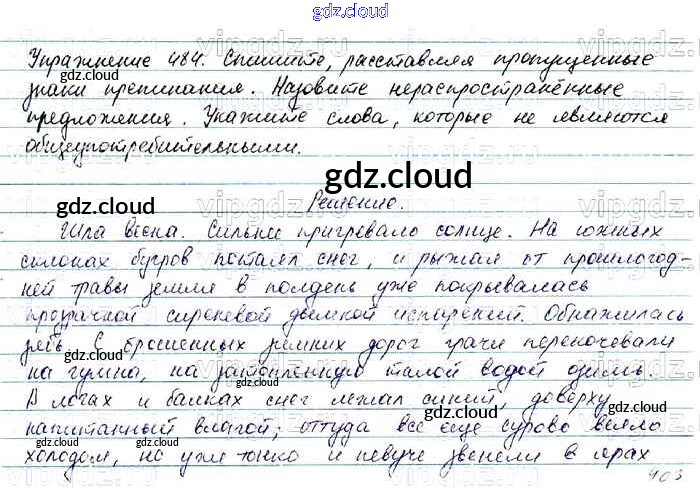 gdz.cloud
Упражнение 484. Спишите, расставляя пропущенные
знаки препинания. Назовите нераспространённые
предложения. Укажите слова, которые не являются
общеупотребительными.
Решение.
Шла весна. Сильнее пригревало солнце. На южных
склонах бугров потаял снег, и рыжая от прошлогод-
ней травы земля в полдень уже покрывалась
прозрачной сиреневой дымкой испарений. Обнажилась
зябь. С брошенных зимних дорог грачи перекочевали
на гумна, на затопленную талой водой озимь.
В логах и балках снег лежал синий, доверху
напитанный влагой; оттуда все еще сурово веяло
холодом, но уже тонко и певуче звенели в ярах
403